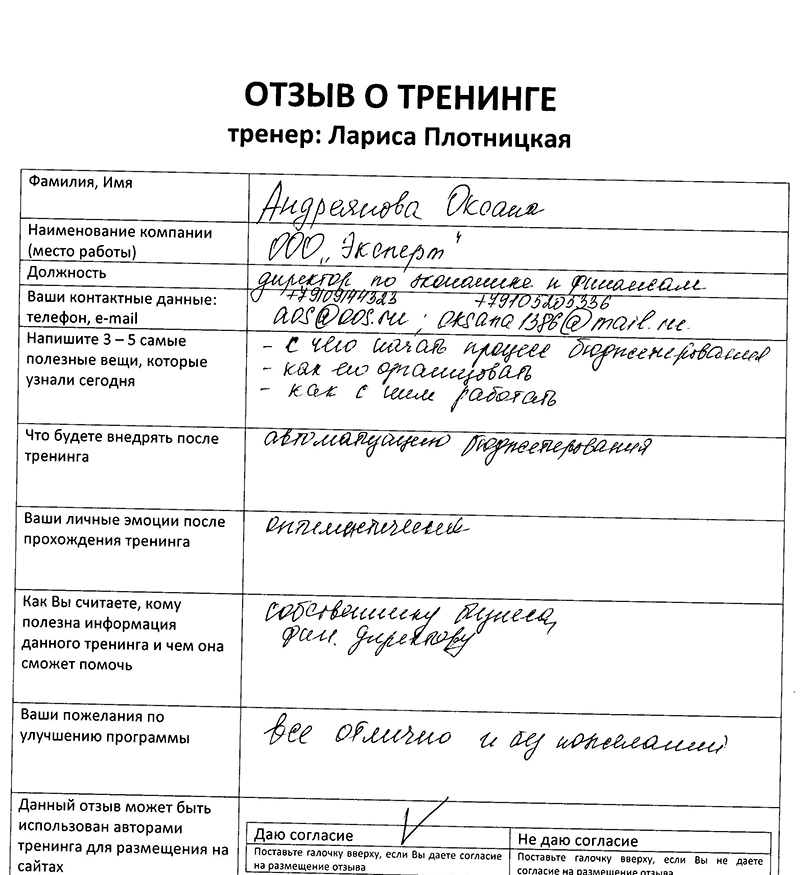 ОТЗЫВ О ТРЕНИНГЕ
тренер: Лариса Плотницкая
Фамилия, Имя
Андреянова Оксана
Наименование компании
(место работы)
ООО „Эксперт"
Должность
директор по экономике и финансам
Ваши контактные данные:
телефон, e-mail
+79109144323 +79105205336
aos@oos.ru; oksana1386@mail.ru.
Напишите 3 – 5 самые
полезные вещи, которые
узнали сегодня
- с чего начать процесс бюджетирования
- как его организовать
- как с ним работать
Что будете внедрять после
тренинга
автоматизацию бюджетирования
Ваши личные эмоции после
прохождения тренинга
оптимистические
Как Вы считаете, кому
полезна информация
данного тренинга и чем она
сможет помочь
собственнику бизнеса,
фин. директору
Ваши пожелания по
улучшению программы
все отлично и без пожеланий
Данный отзыв может быть
использован авторами
тренинга для размещения на
сайтах
Даю согласие
Поставьте галочку вверху, если Вы даете согласие
на размещение отзыва
Не даю согласие
Поставьте галочку вверху, если Вы не даете
согласие на размещение отзыва